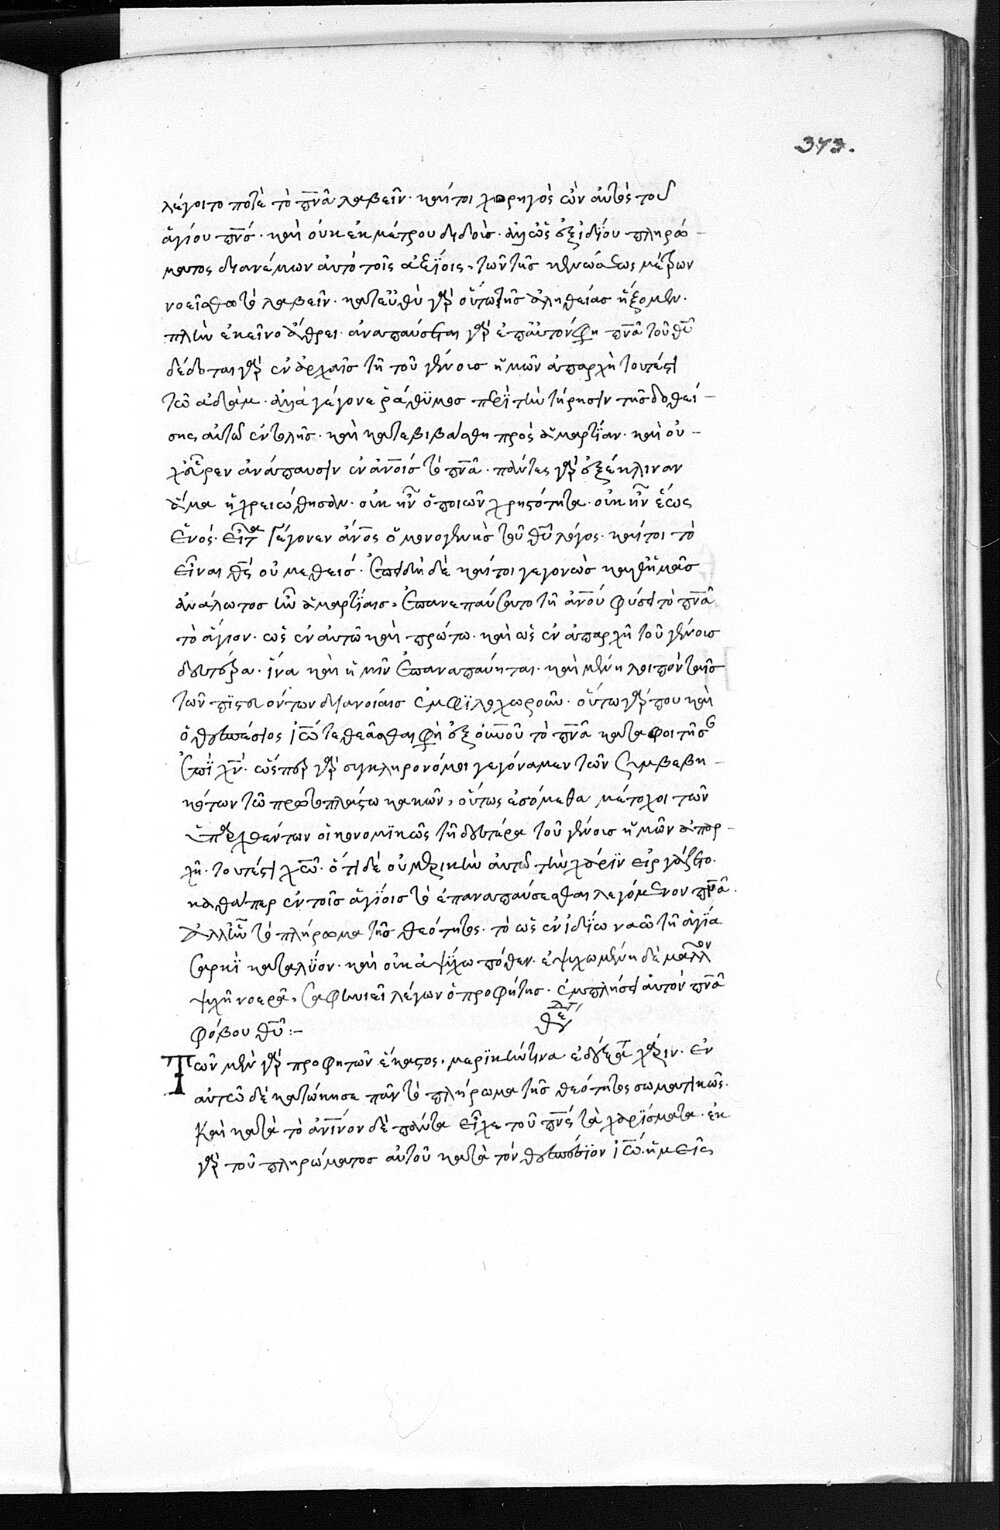 343.
λέγοιτο ποτὲ τὸ πνᾶ λαβεῖν· καίτοι χορηγὸς ὢν αὐτὸς τοῦ
ἁγίου πνς· καὶ οὐκ ἐκ μέτρου διδοὺς· ἀλλ' ὡς ἐξ ἰδίου πληρώ-
ματος διανέμων αὐτὸ τοῖς ἀξίοις, τῶν τῆς κενώσεως μέτρων
νοεῖσθω τὸ λαβεῖν· κατευθὺ γὰρ οὕτω τῆς ἀληθείας ἥξομεν·
πλὴν ἐκεῖνο ἄθρει· ἀναπαύσεται γὰρ ἐπ' αὐτόν φη πνᾶ τοῦ θῦ
δέδοται γὰρ ἐν ἀρχαῖς τῇ τοῦ γένους ἡμῶν ἀπαρχῇ τουτέστι
τῶ ἀδὰμ· ἀλλὰ γέγονε ῥάθυμος περὶ τὴν τήρησιν τῆς δοθεί-
σης αὐτῶ ἐντολῆς· καὶ κατεβιβάσθη πρὸς ἁμαρτίαν· καὶ οὐ-
χ' εὗρεν ἀνάπαυσιν ἐν ἀνοις τὸ πνᾶ· πάντες γὰρ ἐξέκλιναν
ἅμα ἠχρειώθησαν· οὐκ ἦν ὁ ποιῶν χρηστότητα· οὐκ ἦν ἕως
ἑνός· εἶτα γέγονεν ἄνος ὁ μονογενὴς τοῦ θῦ λόγος· καίτοι τὸ
εἶναι θς οὐ μεθεὶς· ἐπειδὴ δὲ καίτοι γεγονὼς καθ' ἡμᾶς
ἀνάλωτος ἦν ἁμαρτίαις, ἐπανεπαύσατο τῇ ἀνου φύσει τὸ πνᾶ
τὸ ἅγιον· ὡς ἐν αὐτῶ καὶ πρώτω· καὶ ὡς ἐν ἀπαρχῇ τοῦ γένους
δευτέρα· ἵνα καὶ ἡμῖν ἐπαναπαύηται· καὶ μένη λοιπὸν ταῖς
τῶν πιστευόντων διανοίαις ἐμφιλοχωροῦν· οὕτω γάρ που καὶ
ὁ θεσπέσιος ἰω τεθεᾶσθαι φη ἐξ οὐνοῦ τὸ πνᾶ καταφοιτῆσαν
ἐπὶ χν· ὥσπερ γὰρ συγκληρονόμοι γεγόναμεν τῶν συμβεβη-
κότων τῶ πρωτοπλάστω κακῶν, οὕτως ἐσόμεθα μέτοχοι τῶν
ὑπαρχθέντων οἰκονομικῶς τῇ δευτέρα τοῦ γένους ἡμῶν ἀπαρ-
χῇ· τουτέστι χω· ὅτι δὲ οὐ μερικὴν αὐτῶ τὴν χάριν εἰργάζετο·
καθάπερ ἐν τοῖς ἁγίοις τὸ ἐπαναπαύσεσθαι λεγόμενον πνᾶ.
ἀλλ' ἦν τὸ πλήρωμα τῆς θεότητος· τὸ ὡς ἐν ἰδίω ναῶ τῇ ἁγία
σαρκὶ καταλῦον· καὶ οὐκ ἀψύχω πόθεν· ἐψυχωμένη δὲ μᾶλλον
ψυχῇ νοερᾶ, σαφηνιεῖ λέγων ὁ προφήτης· ἐμπλήσει αὐτὸν πνᾶ
φόβου θῦ :-
Τῶν μὲν γὰρ προφητῶν ἕκαστος, μερικήν τινα ἐδέξατο χάριν· ἐν
αὐτῶ δὲ κατώκησε πᾶν τὸ πλήρωμα τῆς θεότητος σωματικῶς·
καὶ κατὰ τὸ ἀνινον δὲ πάντα εἶχε τοῦ πνς τὰ χαρίσματα· ἐκ
γὰρ τοῦ πληρώματος αὐτοῦ κατὰ τὸν θεσπέσιον ἰω· ἡμεῖς